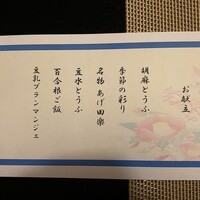 お献立
胡麻とうふ
季節の彩り
名物 あげ田楽
豆水とうふ
百合根ご飯
豆乳ブランマンジェ